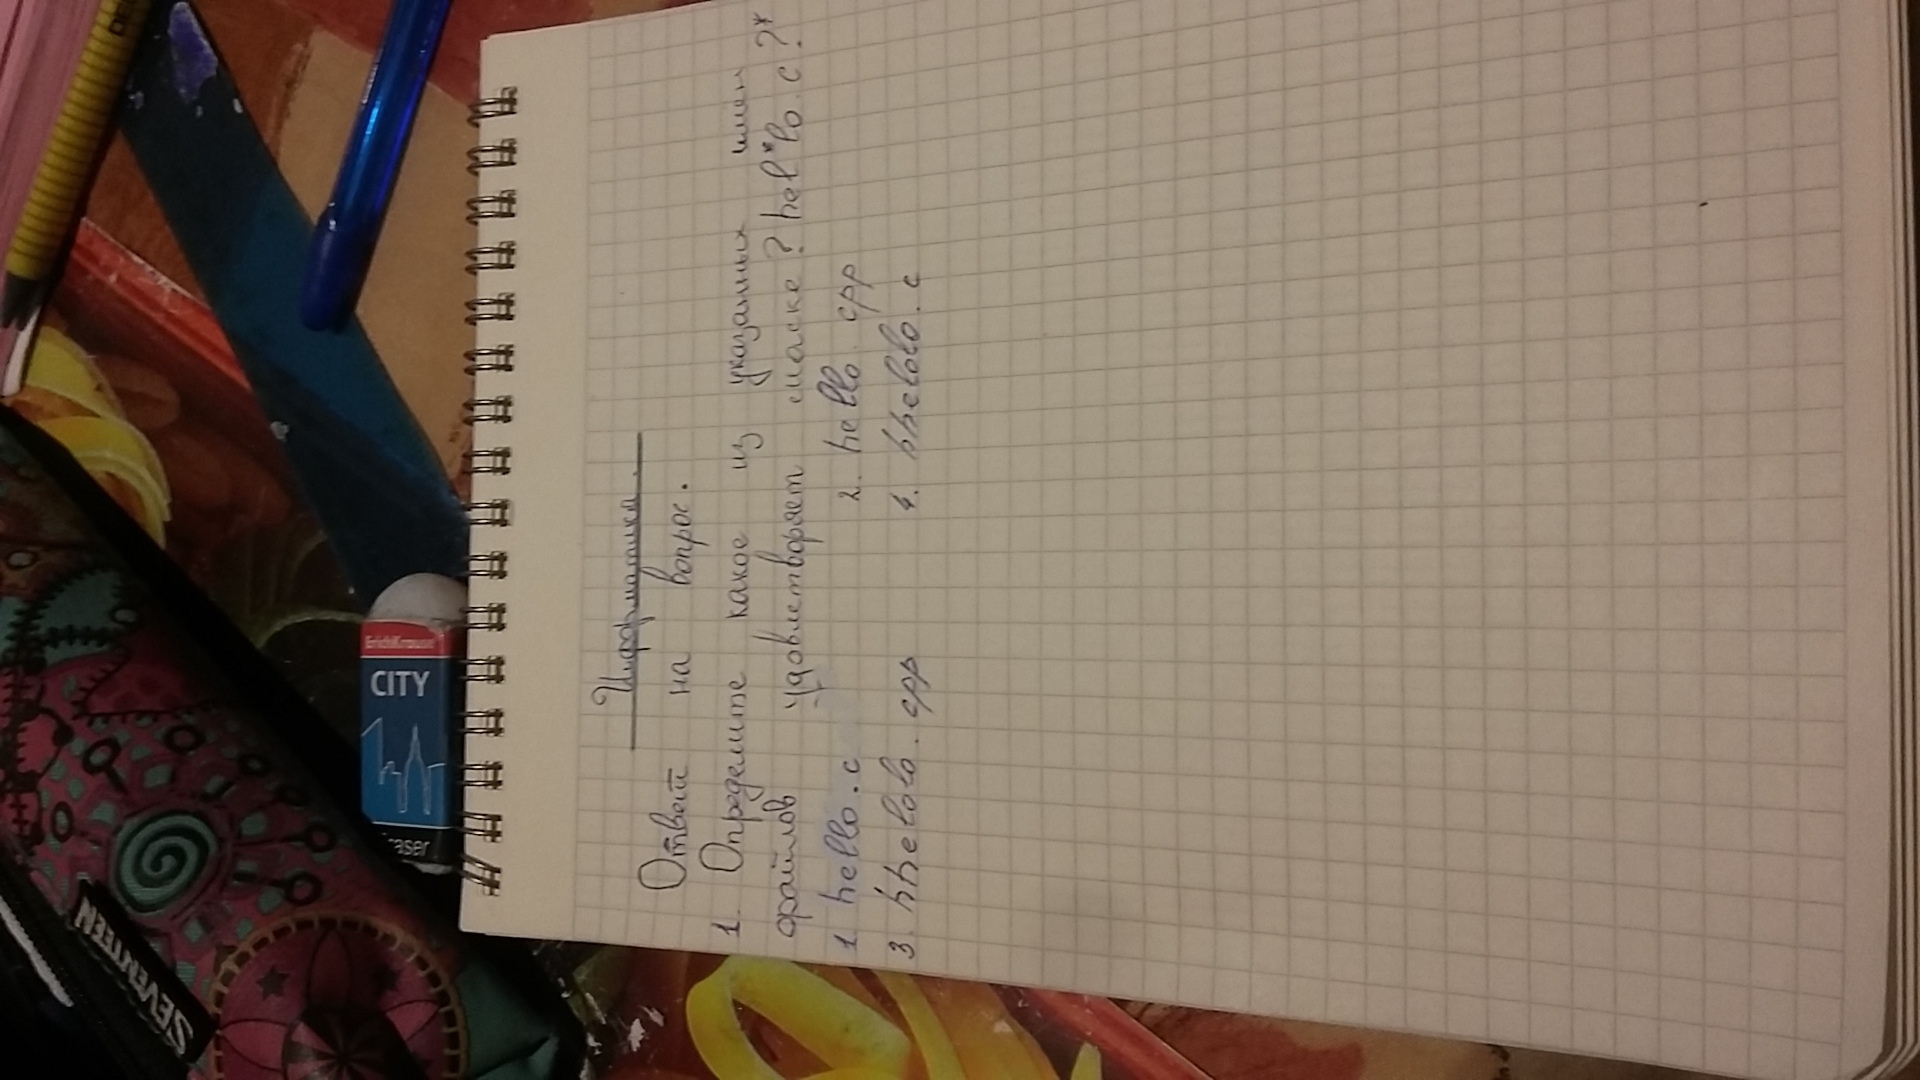 Информатика.
Ответ на вопрос.
1. Определите какое из указанных имен
файлов удовлетворяет маске ? hel*lo.c?*
1. hello.c 2. hello.cpp
3. hhelolo.cpp 4. hhelolo.c
ErichKrause
CITY
eraser
SEVENTEEN